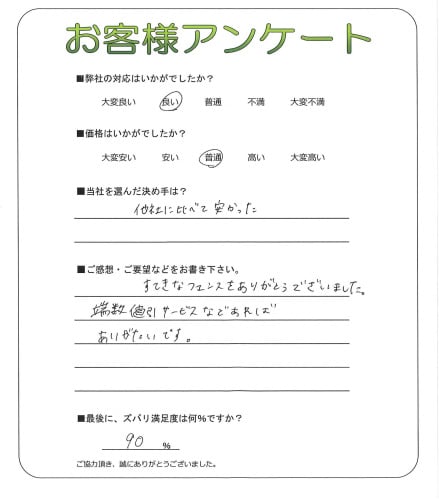 お客様アンケート
■弊社の対応はいかがでしたか?
大変良い 良い 普通 不満 大変不満
■価格はいかがでしたか?
大変安い 安い 普通 高い 大変高い
■当社を選んだ決め手は?
他社に比べて安かった
■ご感想・ご要望などをお書き下さい。
すてきなフェンスをありがとうございました。
端数値引サービスなどあれば
ありがたいです。
■最後に、ズバリ満足度は何%ですか?
90 %
ご協力頂き、誠にありがとうございました。